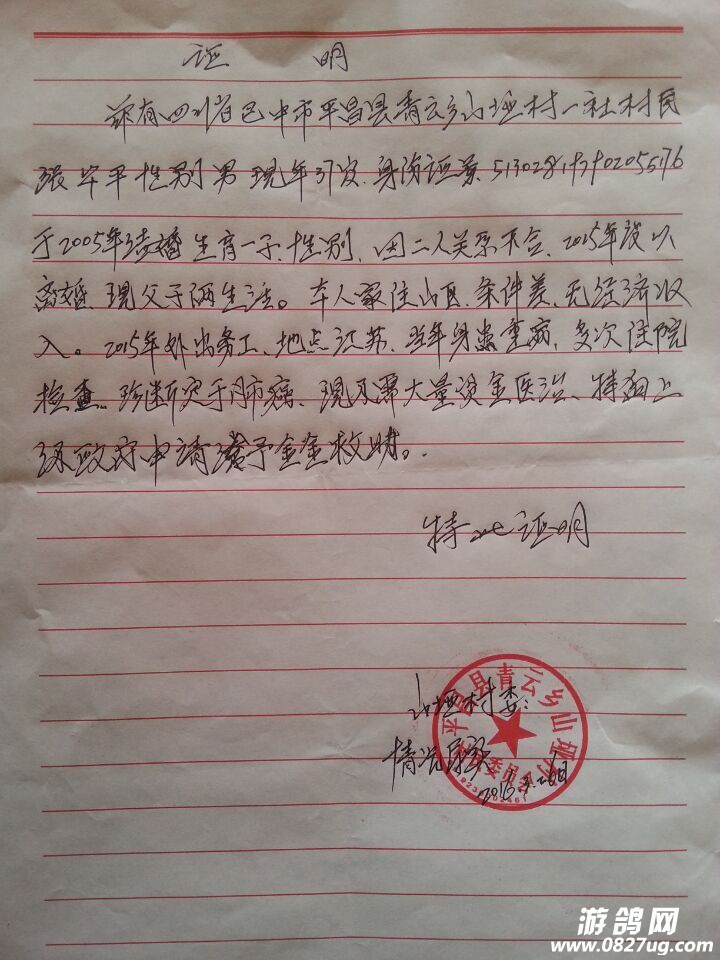 证 明
兹有四川省巴中市平昌县青云乡山垭村一社村民
张华平性别男现年37岁.身份证号.513028197902055176
于2005年结婚生育一子.性别,因二人关系不合.2015年
离婚.现父子俩生活。本人家住山区.条件差.无经济收
入。2015年外出务工、地点江苏.当年身患重病.多次住院
检查.珍断定于肺癌.现需大量资金医治、特向上
级政府申请给予金救助。
特此证明
山垭村委:
情况属实
平昌县青云乡山垭村
委员会
游鸽网
www.0827ug.com